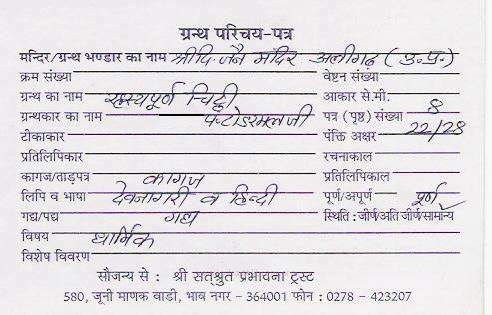 ग्रन्थ परिचय-पत्र
मन्दिर/ग्रन्थ भण्डार का नाम श्री दि. जैन मंदिर अलीगढ़ (उ.प्र.)
क्रम संख्या वेष्टन संख्या
ग्रन्थ का नाम रहस्यपूर्ण चिट्ठी आकार से.मी.
ग्रन्थकार का नाम पं. टोडरमलजी पत्र (पृष्ठ) संख्या 8
टीकाकार पंक्ति अक्षर 22/28
प्रतिलिपिकार रचनाकाल
कागज/ताड़पत्र कागज प्रतिलिपिकाल
लिपि व भाषा देवनागरी व हिन्दी पूर्ण/अपूर्ण पूर्ण
गद्य/पद्य गद्य स्थिति : जीर्ण/अति जीर्ण/सामान्य
विषय धार्मिक
विशेष विवरण
सौजन्य से : श्री सत्श्रुत प्रभावना ट्रस्ट
580, जूनी माणक वाडी, भाव नगर - 364001 फोन : 0278 - 423207